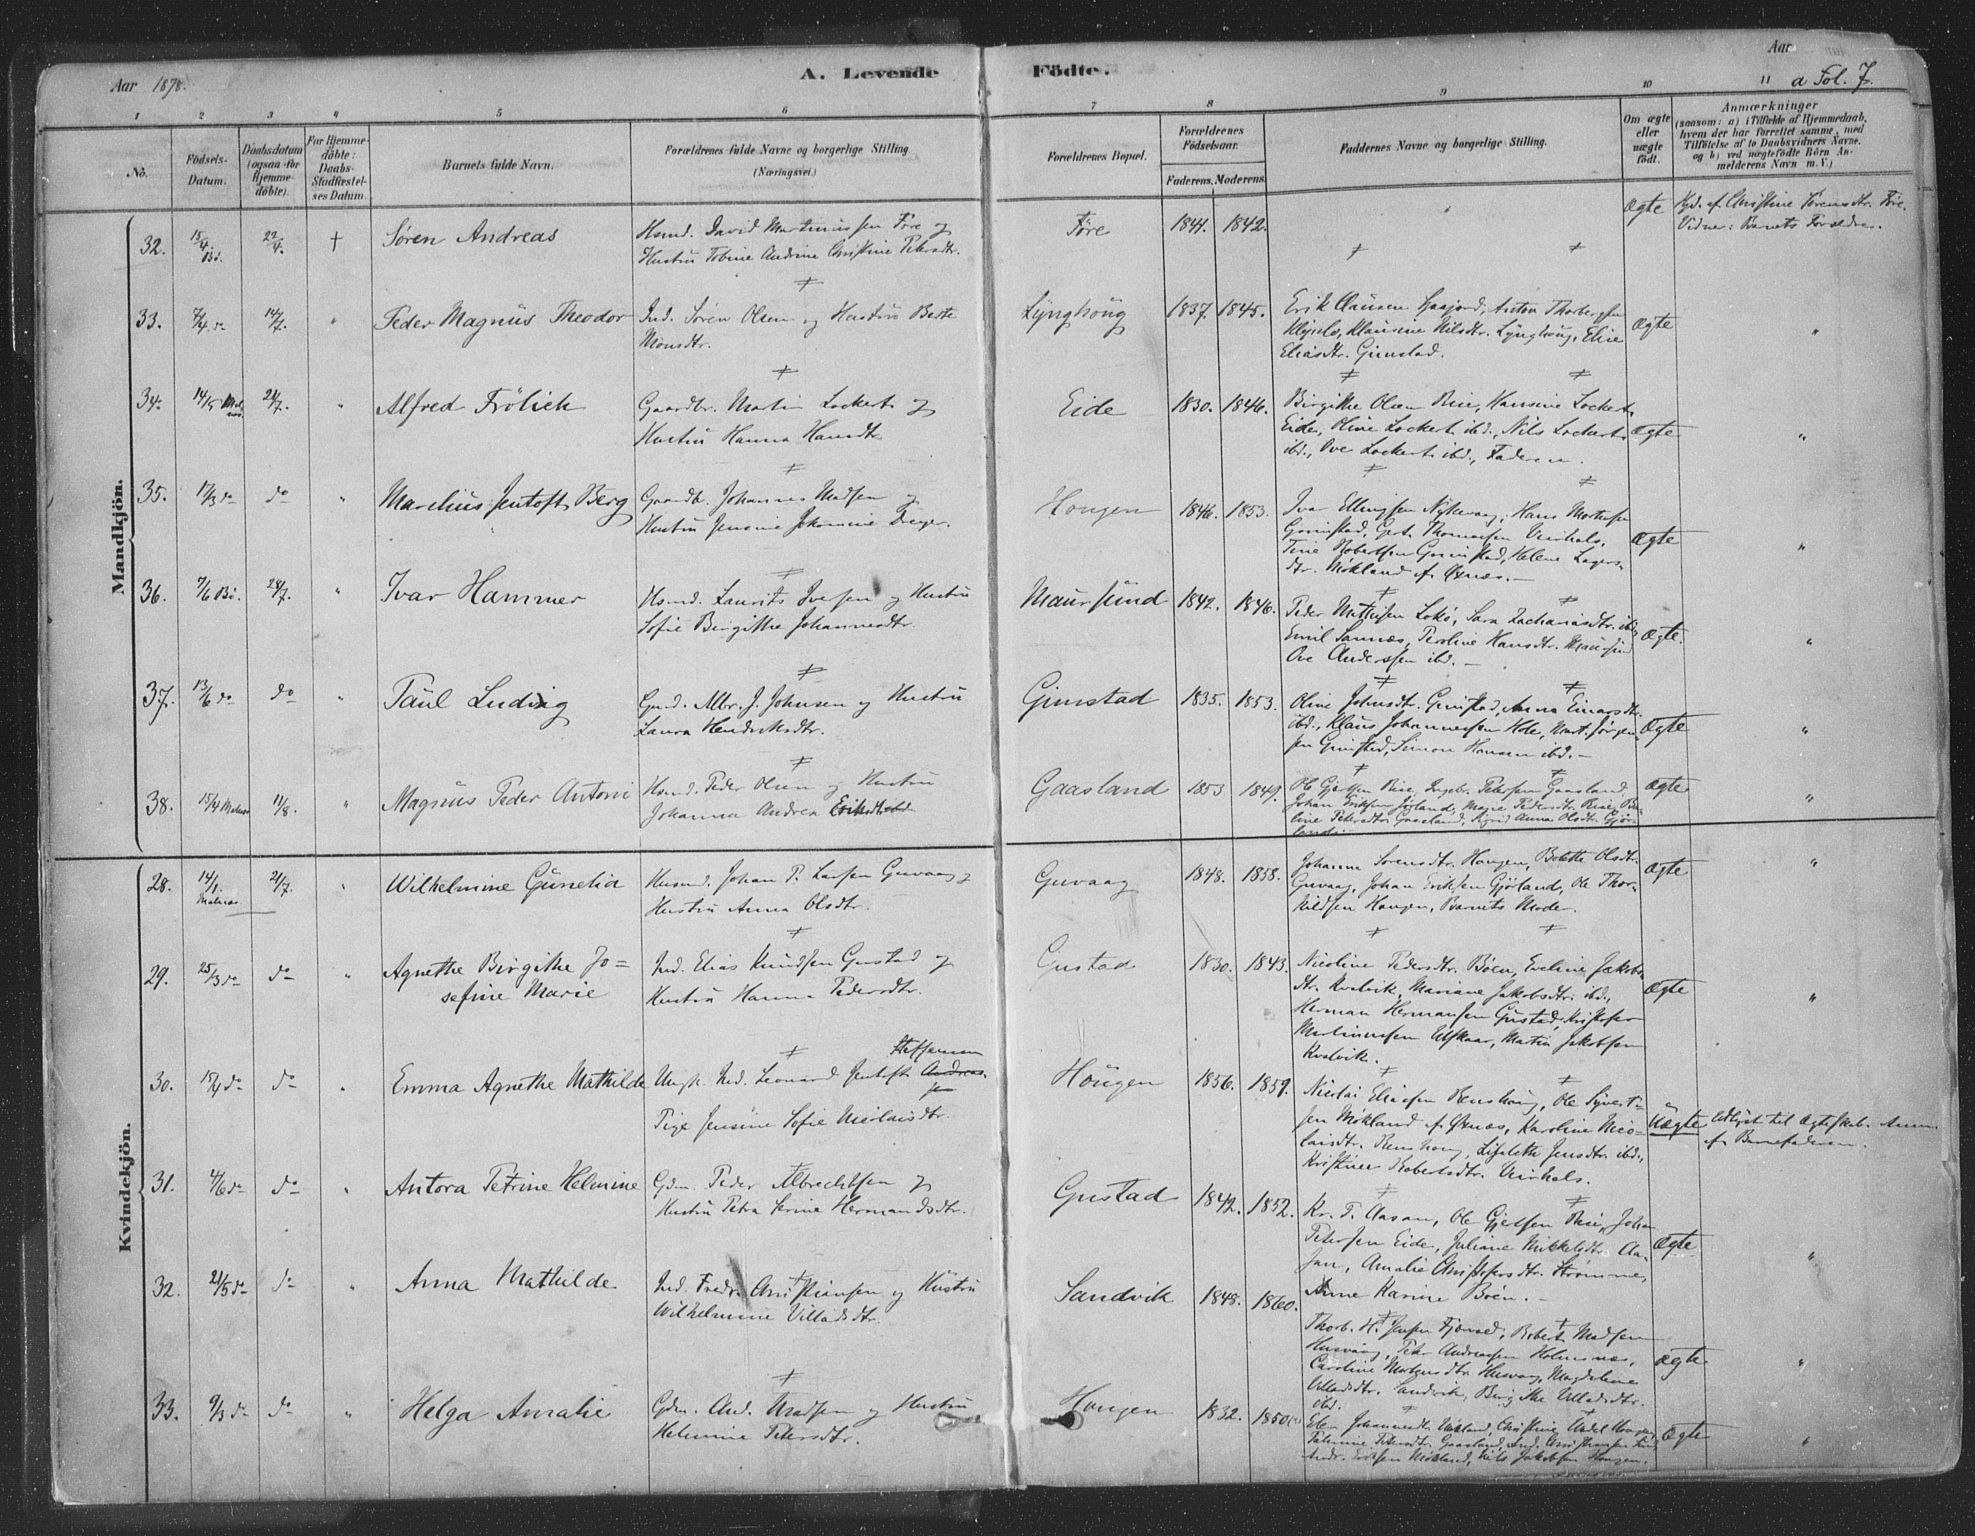 Aar 1878.
A. Levende Födte.
Aar
a Fol. 7.
1 2 3 4 5 6 7 8 9 10 11
No.
Födsels-
Datum.
Daabsdatum
(ogsaa for
Hjemme-
döbte).
For Hjemme-
döbte:
Daabs-
Stadfæstel-
ses Datum.
Barnets fulde Navn.
Forældrenes fulde Navne og borgerlige Stilling
(Næringsvei.)
Forældrenes Bopæl.
Forældrenes
Födselsaar.
Faderens. Moderens.
Faddernes Navne og borgerlige Stilling.
Om ægte
eller
uægte
födt.
Anmærkninger
(saasom: a) i Tilfælde af Hjemmedaab,
hvem der har forrettet samme, med
Tilföielse af to Daabsvidners Navne.
og b) ved uægtefödte Börn An-
melderens Navn m. V.)
Mandkjön.
32. 15/4 Bö. 22/4. † Søren Andreas
Husmd. David Martinussen Føre og
Hustru Tobine Andrine Christine Petersdtr.
Føre 1844. 1842. Ægte
Hjd. af Christine Sørensdtr. Føre.
Vidner: Barnets Forældre.
33. 7/4 do 14/7. " Peder Magnus Theodor
Ind. Søren Olsen og Hustru Berte
Monsdtr.
Lynghöug 1837. 1845.
Erik Clausen Gaajord, Anton Thorbergsen
Klausine Nilsdtr. Lynghöug, Eline
Eliasdtr. Gimstad.
Ægte "
34. 14/5 21/7. " Alfred Frölich
Gaardbr. Martin Lockert og
Hustru Hanna Hansdtr.
Eide 1830. 1846.
Birgithe Olsen Rise, Hansine Lockert
Eide, Oline Lockert ibd., Nils Lockert
ibd., Ove Lockert ibd., Faderen.
Ægte "
35. 17/3 do do " Marelius Jentoft Berg
Gaardb. Johannes Madsen og
Hustru Jensine Johannine Dreyer.
Hougen 1846. 1853.
Ivar Ellingsen Nykvaag, Hans
Grimstad, Thomassen Vinhals,
Trine Robertsen Grimstad, Helene Lagers-
dtr. Mökland af Øxnæs.
Ægte "
36. 7/6 Bö. 28/7. " Ivar Hammer
Husmd. Laurits Iversen og Hustru
Sofie Birgithe Johannesdtr.
Maursund 1842. 1846.
Peder Mathisen Lokö, Sara Zachariasdtr. ibd.,
Emil Sannæs, Peroline Hansdtr. Maursund
Ove Anderssen ibd.
Ægte. "
37. 13/6 do do " Paul Ludvig
Gmd. Albr. J. Johnsen og Hustru
Laura Hendriksdtr.
Gimstad 1835. 1853.
Oline Johnsdtr. Gimstad, Anna Einarsdtr.
ibd., Klaus Johannessen Hole, Mart. Jörgen-
sen Grimstad, Simon Hansen ibd.
Ægte "
38. 15/4 11/8. " Magnus Peder Antoni
Husmd. Peder Olsen og Hustru
Johanna Andrea
Gaasland 1853 1849.
Ole Gjertsen Rise, Ingebr. Petersen Gaasland
Johan Eriksen Gjörland, Marie Pedersdtr. Rise,
Petersdtr. Gaasland, Sigrid Anna Olsdtr. Gjör-
land.
Ægte "
Kvindekjön.
28. 14/1. 21/7. " Wilhelmine Gunelia
Husmd. Johan P. Larsen Guvaag og
Hustru Anna Olsdtr.
Guvaag 1848. 1858.
Johanna Sörensdtr. Hougen, Bolette Olsdtr.
Guvaag, Johan Eriksen Gjörland, Ole Thor-
kildsen Hougen, Barnets Moder.
Ægte "
29. 25/3 do do " Agnethe Birgithe Jo-
sefine Marie
Ind. Elias Knudsen Gustad og
Hustru Hanna Pedersdtr.
Gustad 1830. 1843.
Nicoline Pedersdtr. Böen, Eveline Jakobs-
dtr. Kvalvik, Mariane Jakobsdtr. ibd.,
Herman Hermansen Gustad, Kristofer
Martinussen Ulfskaar, Martin Jakobsen
Kvalvik.
Ægte "
30. 15/4 do do " Emma Agnethe Mathilde
Ungk. Ind. Leonard Jentoft Andreas-
sen Steffensen
Pige Jensine Sofie Nicolaisdtr.
Hougen 1856. 1859.
Nicolai Eliassen Rensböug, Ole Syvert-
sen Mökland af Øxnæs, Karoline Nico-
laisdtr. Lisbeth Jensdtr. ibd.,
Kristine Robertsdtr. Vinhals.
Uægte Udlyst til Ægteskab. Anm.
af Barnefaderen.
31. 4/6 do do " Antora Petrine Helmine
Gdm. Peder Albrechtsen og
Hustru Petra Serine Hermansdtr.
Gustad 1842. 1852.
Kr. P. Aasan, Ole Gjertsen Rise, Johan
Petersen Eide, Juliane Mikkelsdtr. Aa-
san, Amalie Christofersdtr. Strömme,
Anne Karine Böen.
Ægte "
32. 21/5 do do " Anna Mathilde
Ind. Fredr. Christiansen og Hustru
Wilhelmine Villadsdtr.
Sandvik 1848. 1860.
Thorb. H. Jensen Robert Madsen
Husvaag, Peter Andreassen Holmsnæs,
Caroline Mortensdtr. Husvaag, Magdelene
Villadsdtr. Sandvik, Birgithe Villadsdtr.
ibd.
Ægte "
33. 9/3 do do " Helga Amalie
Gdm. And. Madsen og Hustru
Helmine Petersdtr.
Hougen 1832. 1850.
Johannesdtr. Mökland, Christine
Petersdtr. Gaasland, Ind. Christiansen
Andr. Eriksen Mökland, Nils Jakobsen Hougen.
Ægte "